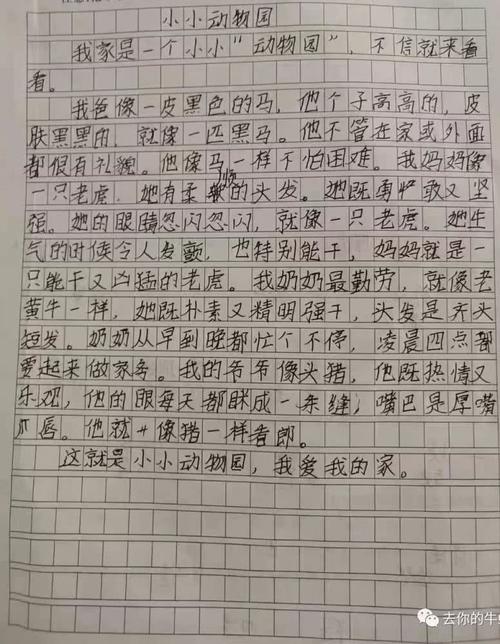 小小动物园
我家是一个小小“动物园”，不信就来看
看。
我爸像一皮黑色的马，他个子高高的，皮
肤黑黑的，就像一匹黑马。他不管在家或外面
都很有礼貌。他像马一样不怕困难。我妈妈像
一只老虎，她有柔顺的头发。她既勇敢又坚
强。她的眼睛忽闪忽闪，就像一只老虎。她生
气的时候令人发颤，也特别能干，妈妈就是一
只能干又凶猛的老虎。我奶奶最勤劳，就像老
黄牛一样，她既朴素又精明强干，头发是齐头
短发。奶奶从早到晚都忙个不停，凌晨四点都
要起来做家务。我的爷爷像头猪，他既热情又
乐观，他的眼每天都眯成一条缝；嘴巴是厚嘴
唇。他就像猪一样
这就是小小动物园，我爱我的家。
去你的牛